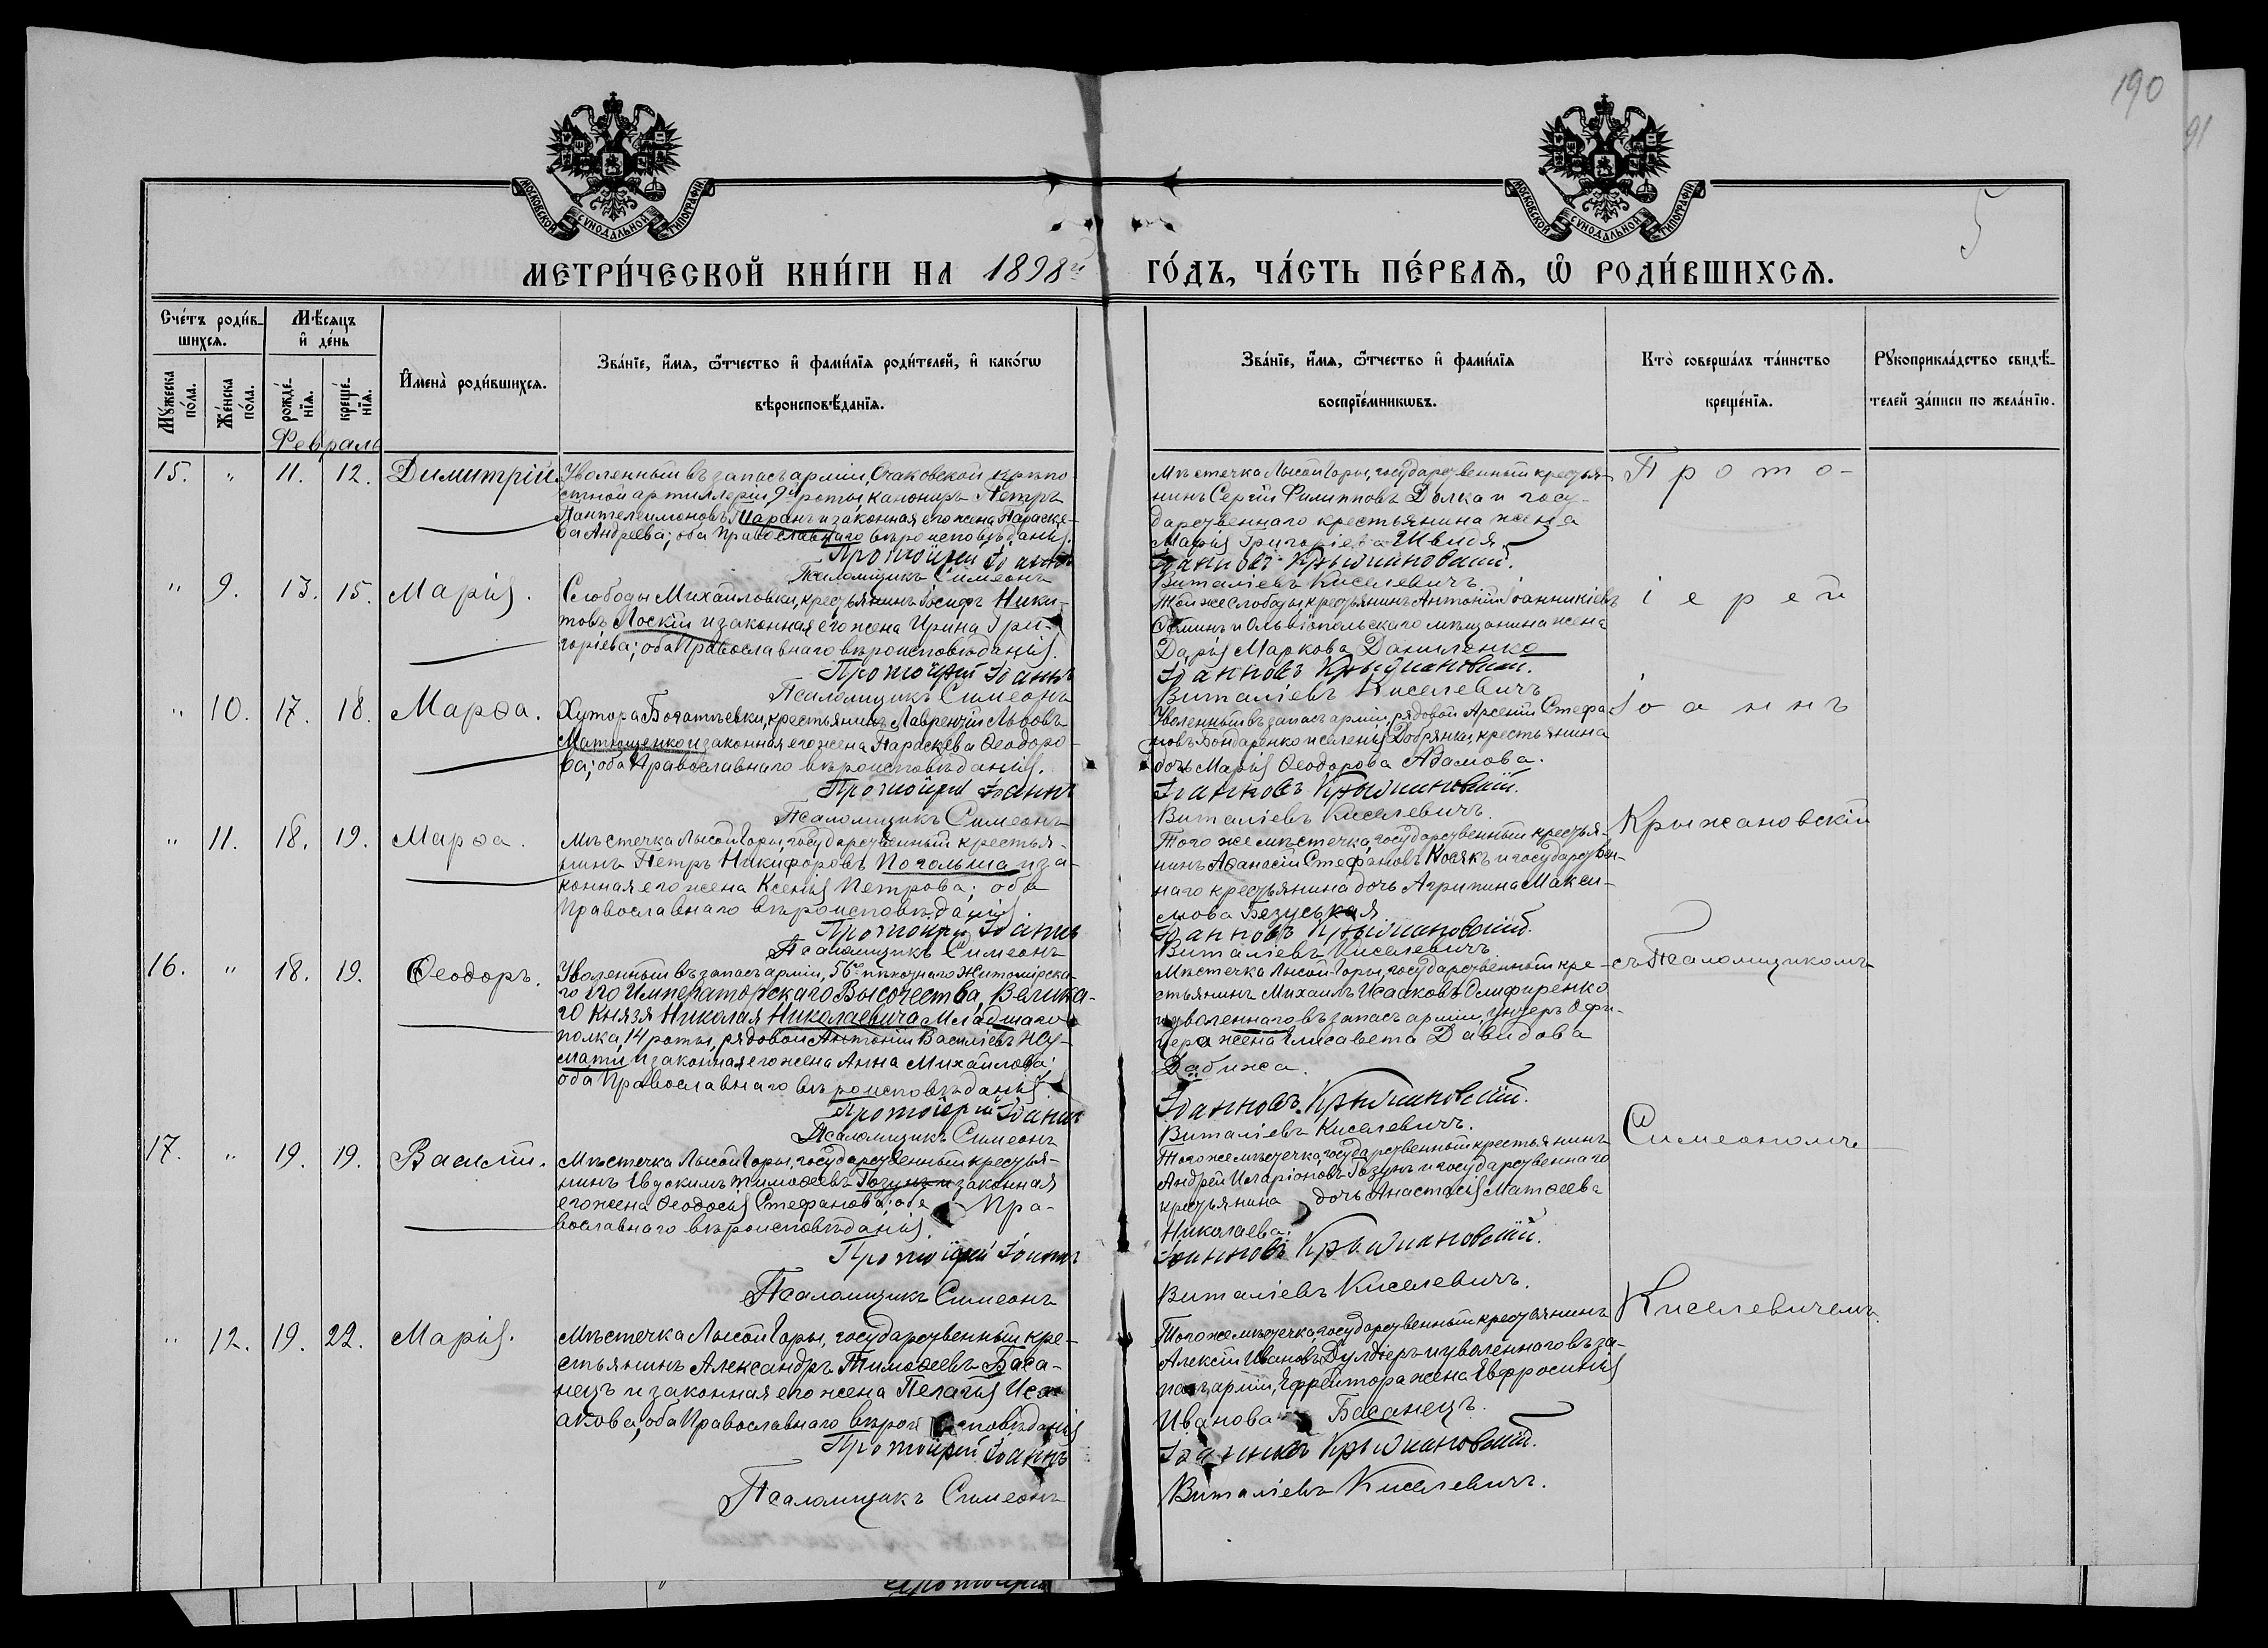 190
91
5
МОСКОВСКОЙ СѴНОДАЛЬНОЙ ТИПОГРАФІИ
МОСКОВСКОЙ СѴНОДАЛЬНОЙ ТИПОГРАФІИ
МЕТРИ́ЧЕСКОЙ КНИ́ГИ НА 1898й ГО́ДЪ, ЧА́СТЬ ПЕ́РВАѦ, Ѡ҆ РОДИ́ВШИХСѦ.
Сче́тъ роди́в-
шихсѧ.
Мѣ́сѧцъ
и҆ де́нь
Мꙋ́жеска по́ла.
Же́нска по́ла.
рожде́-
нїѧ.
креще́-
нїѧ.
И҆мена̀ роди́вшихсѧ.
Зва́нїе, и҆́мѧ, ѻ҆́тчество и҆ фами́лїѧ роди́телей, и҆ како́гѡ
вѣроисповѣ́данїѧ.
Зва́нїе, и҆́мѧ, ѻ҆́тчество и҆ фами́лїѧ
воспрїе́мникѡвъ.
Кто̀ соверша́лъ та́инство
креще́нїѧ.
Рꙋкоприкла́дство свидѣ́-
телей за́писи по жела́нїю.
Февраль
15. " 11. 12. Димитрій.
Уволенный въ запасъ арміи, Очаковской крѣпо
стной артиллеріи 9й роты канониръ Петръ
Пантелеимоновъ Шаранъ и законная его жена Параске-
ва Андреева; оба православнаго вѣроисповѣданія.
Протоіерей Іоаннъ
Псаломщикъ Симеонъ
Мѣстечка Лысой Горы, государственный крестья-
нинъ Сергій Филипповъ Долка и госу-
дарственнаго крестьянина жена
Марія Григоріева Швидя.
Іоанновъ Крыжановскій.
Виталіевъ Киселевичъ
" 9. 13. 15. Марія.
Слободы Михайловки, крестьянинъ Іосифъ Ники-
товъ Лоскій и законная его жена Ирина Гри-
горіева; оба Православнаго вѣроисповѣданія.
Протоіерей Іоаннъ
Псаломщикъ Симеонъ
Той же слободы, крестьянинъ Антоній Іоанникіевъ
Сёминъ и Ольвіопольскаго мѣщанина жена
Дарія Маркова Даниленко
Іоанновъ Крыжановскій.
Виталіевъ Киселевичъ
" 10. 17. 18. Марѳа.
Хутора Богатыевки, крестьянинъ Лаврентій Львовъ
Матющенко и законная его жена Параскева Ѳеодоро-
ва; оба Православнаго вѣроисповѣданія.
Протоіерей Іоаннъ
Псаломщикъ Симеонъ
Уволенный въ запасъ арміи, рядовой Арсеній Стефа
новъ Бондаренко и селенія Добрянки, крестьянина
дочь Марія Ѳеодорова Адамова.
Іоанновъ Крыжановскій.
Виталіевъ Киселевичъ.
" 11. 18. 19. Марѳа.
Мѣстечка Лысой Горы, государственный крестья-
нинъ Петръ Никифоровъ Погольша и за-
конная его жена Ксенія Петрова; оба
Православнаго вѣроисповѣданія.
Протоіерей Іоаннъ
Псаломщикъ Симеонъ
Того же мѣстечка, государственный крестья-
нинъ Аѳанасій Стефановъ Косякъ и государствен-
наго крестьянина дочь Агрипина Макси-
мова Безуська я
Іоанновъ Крыжановскій.
Виталіевъ Киселевичъ
16. " 18. 19. Ѳеодоръ.
Уволенный въ запасъ арміи, 56го пѣхотнаго Житомірска-
го Его Императорскаго Высочества, Велика-
го Князя Николая Николаевича Младшаго
полка, 14 роты, рядовой Антоній Василіевъ
и законная его жена Анна Михайлова;
оба Православнаго вѣроисповѣданія.
Протоіерей Іоаннъ
Псаломщикъ Симеонъ
Мѣстечка Лысой Горы, государственный кре-
стьянинъ Михаилъ Исааковъ Олифиренко
и уволеннаго въ запасъ арміи, унтеръ офи-
цера жена Елисавета Давидова
Дабижа.
Іоанновъ Крыжановскій.
Виталіевъ Киселевичъ.
17. " 19. 19. Василій.
Мѣстечка Лысой Горы, государственный крестья-
нинъ Евдокимъ Тимоѳеевъ Гозунъ и законная
его жена Ѳеодосія Стефанова; оба Пра-
вославнаго вѣроисповѣданія.
Протоіерей Іоаннъ
Псаломщикъ Симеонъ
Того же мѣстечка, государственный крестьянинъ
Андрей Иларіоновъ Гозунъ и государственнаго
крестьянина дочь Анастасія Матѳеева
Николаева.
Іоанновъ Крыжановскій.
Виталіевъ Киселевичъ.
" 12. 19. 22. Марія.
Мѣстечка Лысой Горы, государственный кре-
стьянинъ Александръ Тимоѳеевъ Баса-
нецъ и законная его жена Пелагія Иса
акова, оба Православнаго вѣроисповѣданія
Протоіерей Іоаннъ
Псаломщикъ Симеонъ
Того же мѣстечка, государственный крестьянинъ
Алексій Ивановъ Дулдіеръ и уволеннаго въ за-
пасъ арміи, Ефрейтора жена Евфросинія
Иванова Басанецъ.
Іоанновъ Крыжановскій.
Виталіевъ Киселевичъ.
Прото-
іерей
Іоаннъ
Крыжановскій
съ Псаломщикомъ
Симеономъ
Киселевичемъ.
Протоіерей